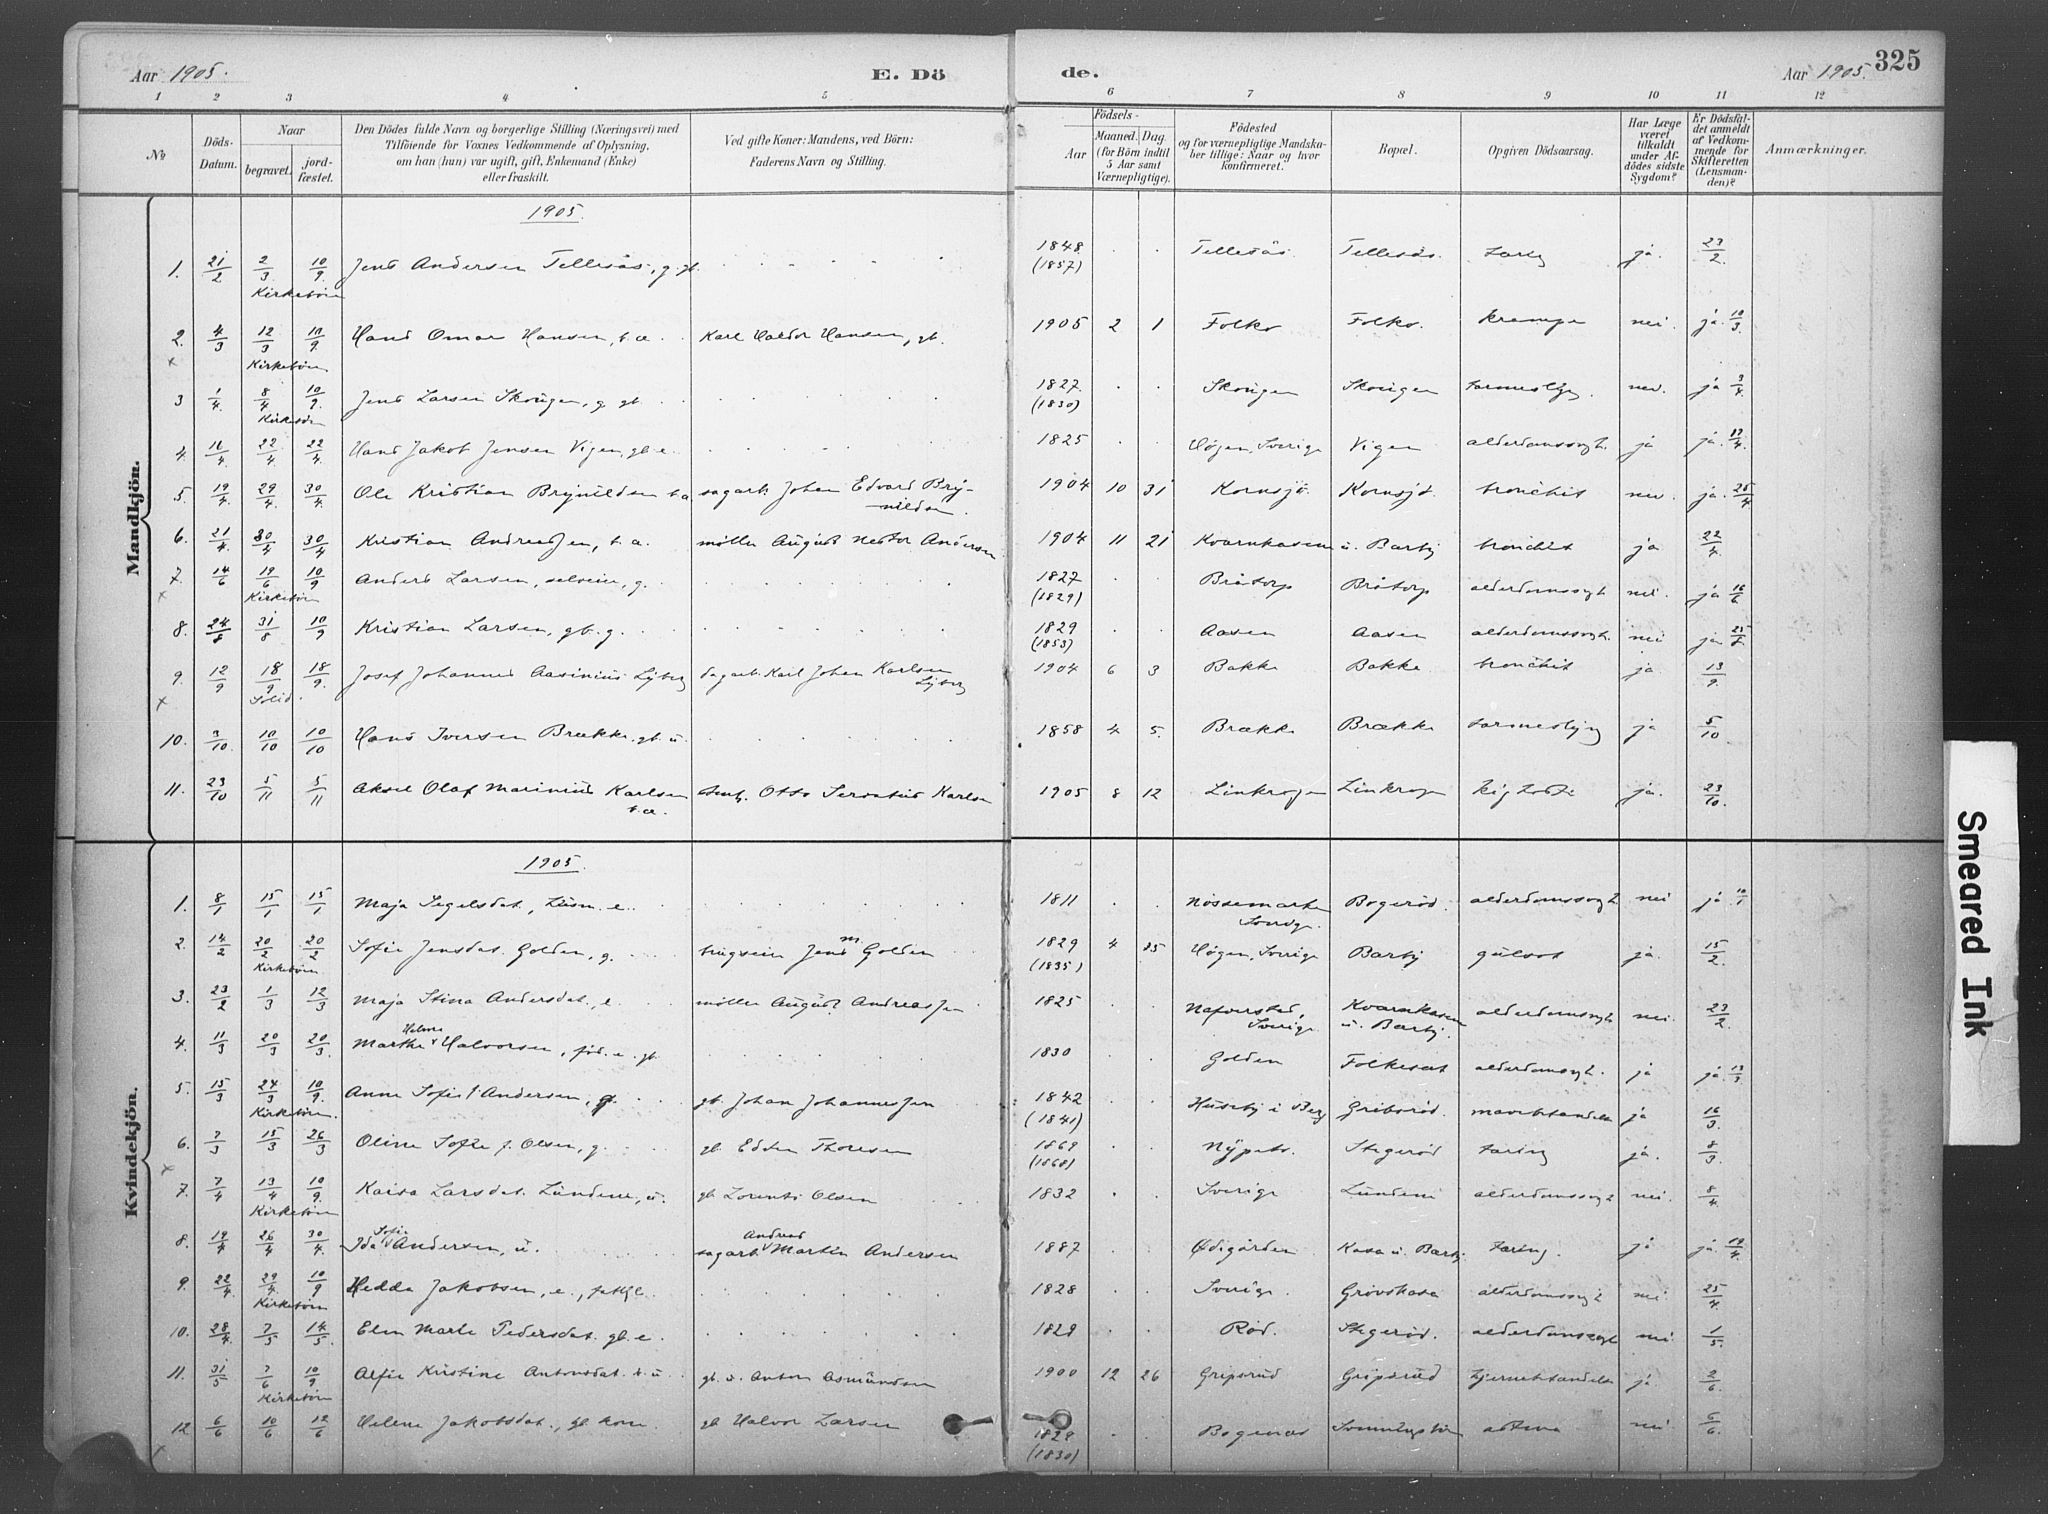 Aar 1905.
E. Dö
de.
Aar 1905.
325
1 2 3 4 5 6 7 8 9 10 11 12
No
Döds-Datum.
Naar
begravet.
jord-fæstet.
Den Dödes fulde Navn og borgerlige Stilling (Næringsvei) med
Tilföiende for Voxnes Vedkommende af Oplysning,
om han (hun) var ugift, gift, Enkemand (Enke)
eller fraskilt.
Ved gifte Koner: Mandens, ved Börn:
Faderens Navn og Stilling.
Födsels-
Aar
Maaned. Dag.
(for Börn indtil
5 Aar samt
Værnepligtige).
Födested
og for værnepligtige Mandska-
ber tillige: Naar og hvor
konfirmeret.
Bopæl.
Opgiven Dödsaarsag.
Har Læge
været
tilkaldt
under Af-
dödes sidste
Sygdom?
Er Dödsfal-
det anmeldt
af Vedkom-
mende for
Skifteretten
(Lensman-
den)?
Anmærkninger.
Mandkjön.
1905.
1. 21/2 2/3 10/9 Jens Andersen Tellesås, g. gb. 1848 Tellesås Tellesås tæring ja. 23/2
Kirkebøen (1857)
2. 4/3 12/3 10/9 Hans Omar Hansen, t.a. Karl Haldor Hansen, gb. 1905 2 1 Folko Folko. krampe nei. ja. 10/3
Kirkebøen
3 1/4 8/4 10/9 Jens Larsen Skougen, g. gb. 1827 Skougen Skougen nei. ja 3/4
Kirkebøen (1830)
4. 16/4 22/4 22/4 Hans Jakob Jensen Vigen, gb. e. 1825 Högen, Sverige Vigen alderdomssygd. ja ja. 17/4
5. 19/4 29/4 30/4 Ole Kristian Brynildsen t.a sagarb. Johan Edvard Bry- 1904 10 31 Kornsjø. Kornsjø. bronchit nei. ja. 25/4
nildsen.
6. 21/4 30/4 30/4 Kristian Andreassen, t.a. møller August Nestor Andersen 1904 11 21 Kvarnkasen u. Barby bronchit ja 22/4
7. 14/6 19/6 10/9 Anders Larsen, selveier, g. 1827 Bråtorp Bråtorp alderdomssygd. nei. ja 16/6
Kirkebøen (1829)
8. 24/8 31/8 10/9 Kristian Larsen, gb. g. 1829 Aasen Aasen alderdomssygd. nei ja 25/8
(1853)
9. 12/9 18/9 18/9 Josef Johannes Aasinius Lyberg dagarb. Karl Johan Karlsen 1904 6 3 Bakke Bakke. bronchit ja 13/9.
Lyberg
10. 3/10 10/10 10/10 Hans Iversen Brække, gb. u. 1858 4 5. Brække Brække ja 5/10
11. 23/10 5/11 5/11 Aksel Olaf Marinius Karlsen Otto Servatius Karlsen 1905 8 12 Linkrogen Linkrogen kighoste ja. 23/10.
t.a.
Kvindekjön.
1905.
1. 8/1 15/1 15/1 Maja Segelsdat., e. 1811 Nössemark Bogerød. alderdomssygd nei ja 10/1
Sverige.
2. 14/2 20/2 20/2 Sofie Jensdat. Golden, g. brugseier Jens M. Golden 1829 4 25 Högen, Sverige Barby gulsot ja. 15/2.
Kirkebøen (1835)
3. 23/2 1/3 12/3 Maja Stina Andersdat., e. møller August Andreassen 1825 Nafverstad, Kvarnkasen alderdomssygd nei. 23/2
Sverige u. Barby.
4. 11/3 20/3 20/3 Marthe Helene Halvorsen, föd. e. gb. 1830 Golden Folkesæt alderdomssygd. ja ja. 13/3
5. 15/3 24/3 10/9 Anne Sofie Andersen, g. gb. Johan Johannessen 1842 Huseby i Berg Gribsrød. mavebetændelse ja 16/3
Kirkebøen. (1841)
6. 7/3 15/3 26/3 Oline Sofie f. Olsen, g. gb. Edvin Thoresen 1869 Nypeb. Stegerød tæring ja. 8/3
(1868)
7. 7/4 13/4 10/9 Kaisa Larsdat. Lundene, u. gb. Lorents Olsen 1832 Sverige Lundene alderdomssygd nei. 8/4
Kirkebøen
8. 19/4 26/4 30/4 Ida Sofie Andersen, u. sagarb. Andreas Martin Andersen 1887 Ødegården Kasa u. Barby. tæring. ja ja. 19/4
9. 22/4 29/4 10/9 Hedda Jakobsen, e., fattigl. 1828 Sverige. Grovskasa alderdomssygd nei. 25/4.
Kirkebøen
10. 28/4 7/5 14/5 Elen Marte Pedersdat. gb. e. 1829 Rød. Stegerød. alderdomssygd nei 1/5
11. 31/5 7/6 10/9 Alfie Kristine Antonsdat. t.u. gb. s. Anton Asmundsen 1900 12 26 Gripsrud Gripsrud hjernebetændelse ja. 2/6.
Kirkebøen
12 6/6 10/6 12/6 Helene Jakobsdat., gb. kone gb. Halvor Larsen 1829 Bogenæs astma nei 6/6.
(1830)
Smeared Ink